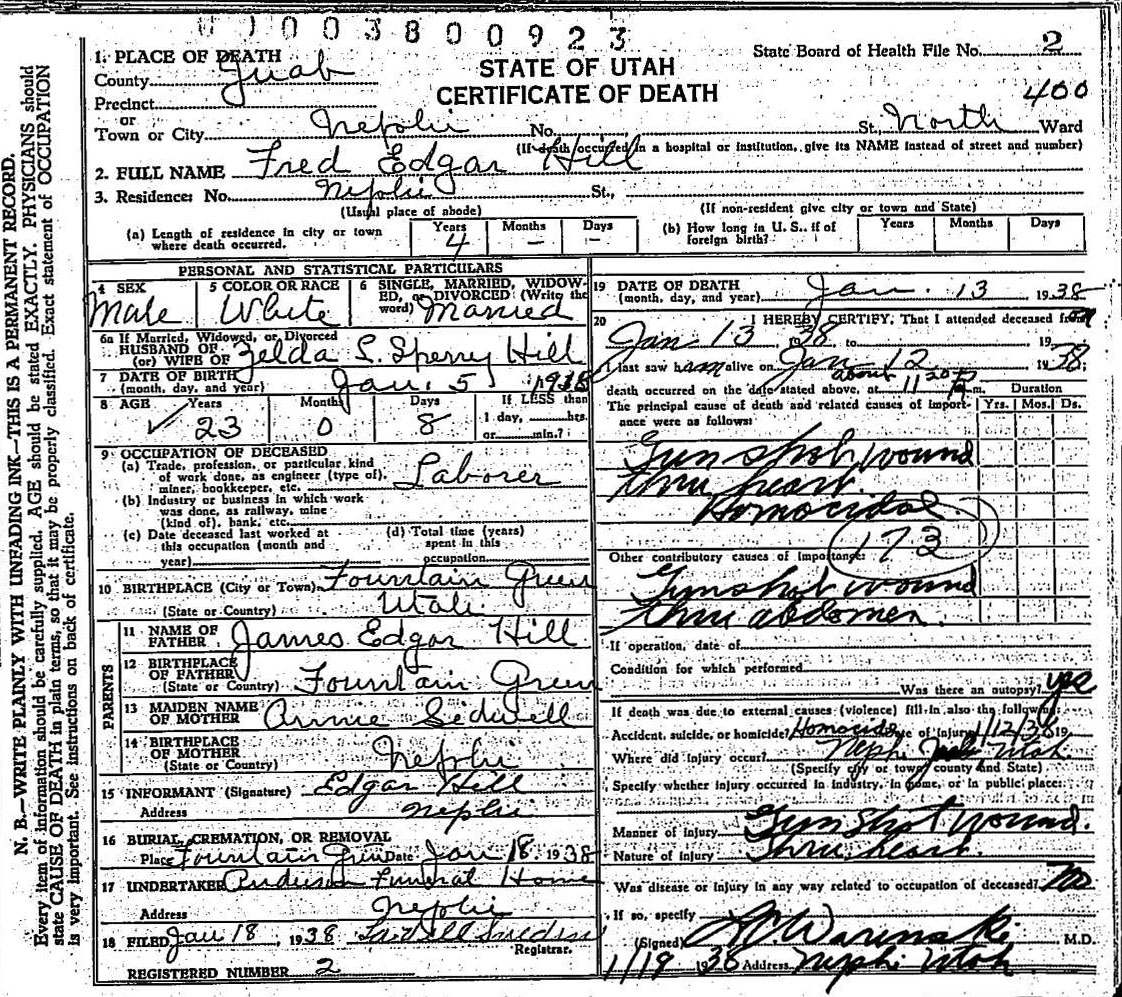 0 1 0 0 3 8 0 0 9 2 3
State Board of Health File No. 2
1. PLACE OF DEATH
County Juab
STATE OF UTAH
CERTIFICATE OF DEATH
400
Precinct
or
Town or City Nephi No. St., North Ward
(If death occurred in a hospital or institution, give its NAME instead of street and number)
2. FULL NAME Fred Edgar Hill
3. Residence: No. Nephi St.,
(Usual place of abode) (If non-resident give city or town and State)
(a) Length of residence in city or town where death occurred. Years 4 Months - Days -
(b) How long in U. S., if of foreign birth? Years Months Days
N. B.—WRITE PLAINLY WITH UNFADING INK—THIS IS A PERMANENT RECORD.
Every item of information should be carefully supplied. AGE should be stated EXACTLY. PHYSICIANS should
state CAUSE OF DEATH in plain terms, so that it may be properly classified. Exact statement of OCCUPATION
is very important. See instructions on back of certificate.
PERSONAL AND STATISTICAL PARTICULARS
4 SEX Male
5 COLOR OR RACE White
6 SINGLE, MARRIED, WIDOWED, or DIVORCED: (Write the word) Married
6a If Married, Widowed, or Divorced
HUSBAND OF
(or) WIFE OF Zelda L. Sperry Hill
7 DATE OF BIRTH
(month, day, and year) Jan. 5
8 AGE Years 23 Months 0 Days 8
If LESS than
1 day, hrs.
or min.?
9 OCCUPATION OF DECEASED
(a) Trade, profession, or particular kind
of work done, as engineer (type of),
miner, bookkeeper, etc. Laborer
(b) Industry or business in which work
was done, as railway, mine
(kind of), bank, etc.
(c) Date deceased last worked at
this occupation (month and
year)
(d) Total time (years)
spent in this
occupation
10 BIRTHPLACE (City or Town) Fountain Green
(State or Country) Utah
PARENTS
11 NAME OF
FATHER James Edgar Hill
12 BIRTHPLACE
OF FATHER
(State or Country) Fountain Green
13 MAIDEN NAME
OF MOTHER Annie Sidwell
14 BIRTHPLACE
OF MOTHER
(State or Country) Nephi
15 INFORMANT (Signature) Edgar Hill
Address Nephi
16 BURIAL, CREMATION, OR REMOVAL
Place Fountain Green Date Jan 18, 1938
17 UNDERTAKER Anderson Funeral Home
Address Nephi
18 FILED Jan 18, 1938
Registrar.
REGISTERED NUMBER 2
19 DATE OF DEATH
(month, day, and year) Jan. 13 1938
20 I HEREBY CERTIFY, That I attended deceased from
Jan 13, 1938 to 19
I last saw h am alive on Jan 12 1938;
about
death occurred on the date stated above, at 11 20 P m.
The principal cause of death and related causes of importance were as follows:
Duration
Yrs. Mos. Ds.
Gun shot wound
thru heart.
Homocidal
173
Other contributory causes of importance:
Gunshot wound
thru abdomen.
If operation, date of
Condition for which performed
Was there an autopsy? yes
If death was due to external causes (violence) fill in also the following:
Accident, suicide, or homicide? Homocide Date of injury 1/12/38 19
Where did injury occur? Nephi Juab Utah
(Specify city or town, county and State)
Specify whether injury occurred in industry, in home, or in public place:
Manner of injury Gun Shot Wound.
Nature of injury Thru heart.
Was disease or injury in any way related to occupation of deceased? No
If so, specify
(Signed) Warenski M.D.
1/19 1938 Address Nephi Utah